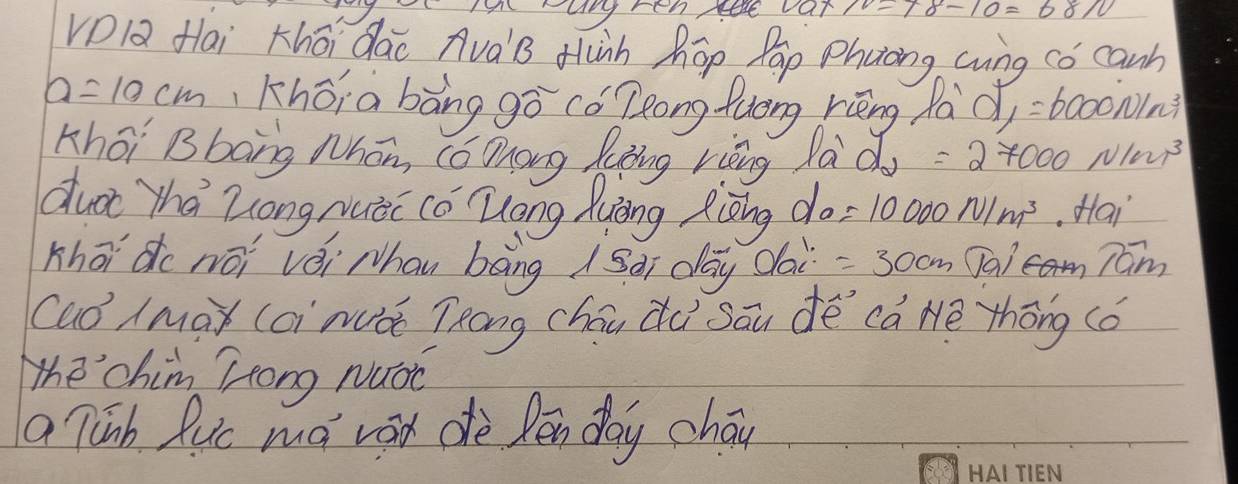 VD12 Hai khối đặc A và B Hình hộp lập phương cùng có cạnh
a = 10 cm, Khối a bằng gỗ có Trọng lượng riêng là d₁ = 6000 N/m³
Khối B bằng Nhôm, có trọng lượng riêng là d₂ = 27000 N/m³
được thả trong nước có trọng lượng riêng d₀ = 10 000 N/m³. Hai
khối đc nối với nhau bằng 1 sợi dây dài = 30cm Tại Tâm
của 1 mặt (coi nước Trong chậu đủ sâu để cả Hệ thống có
thể chìm Trong Nước
a Tính lực mà vật đè lên đáy chậu
HAI TIEN